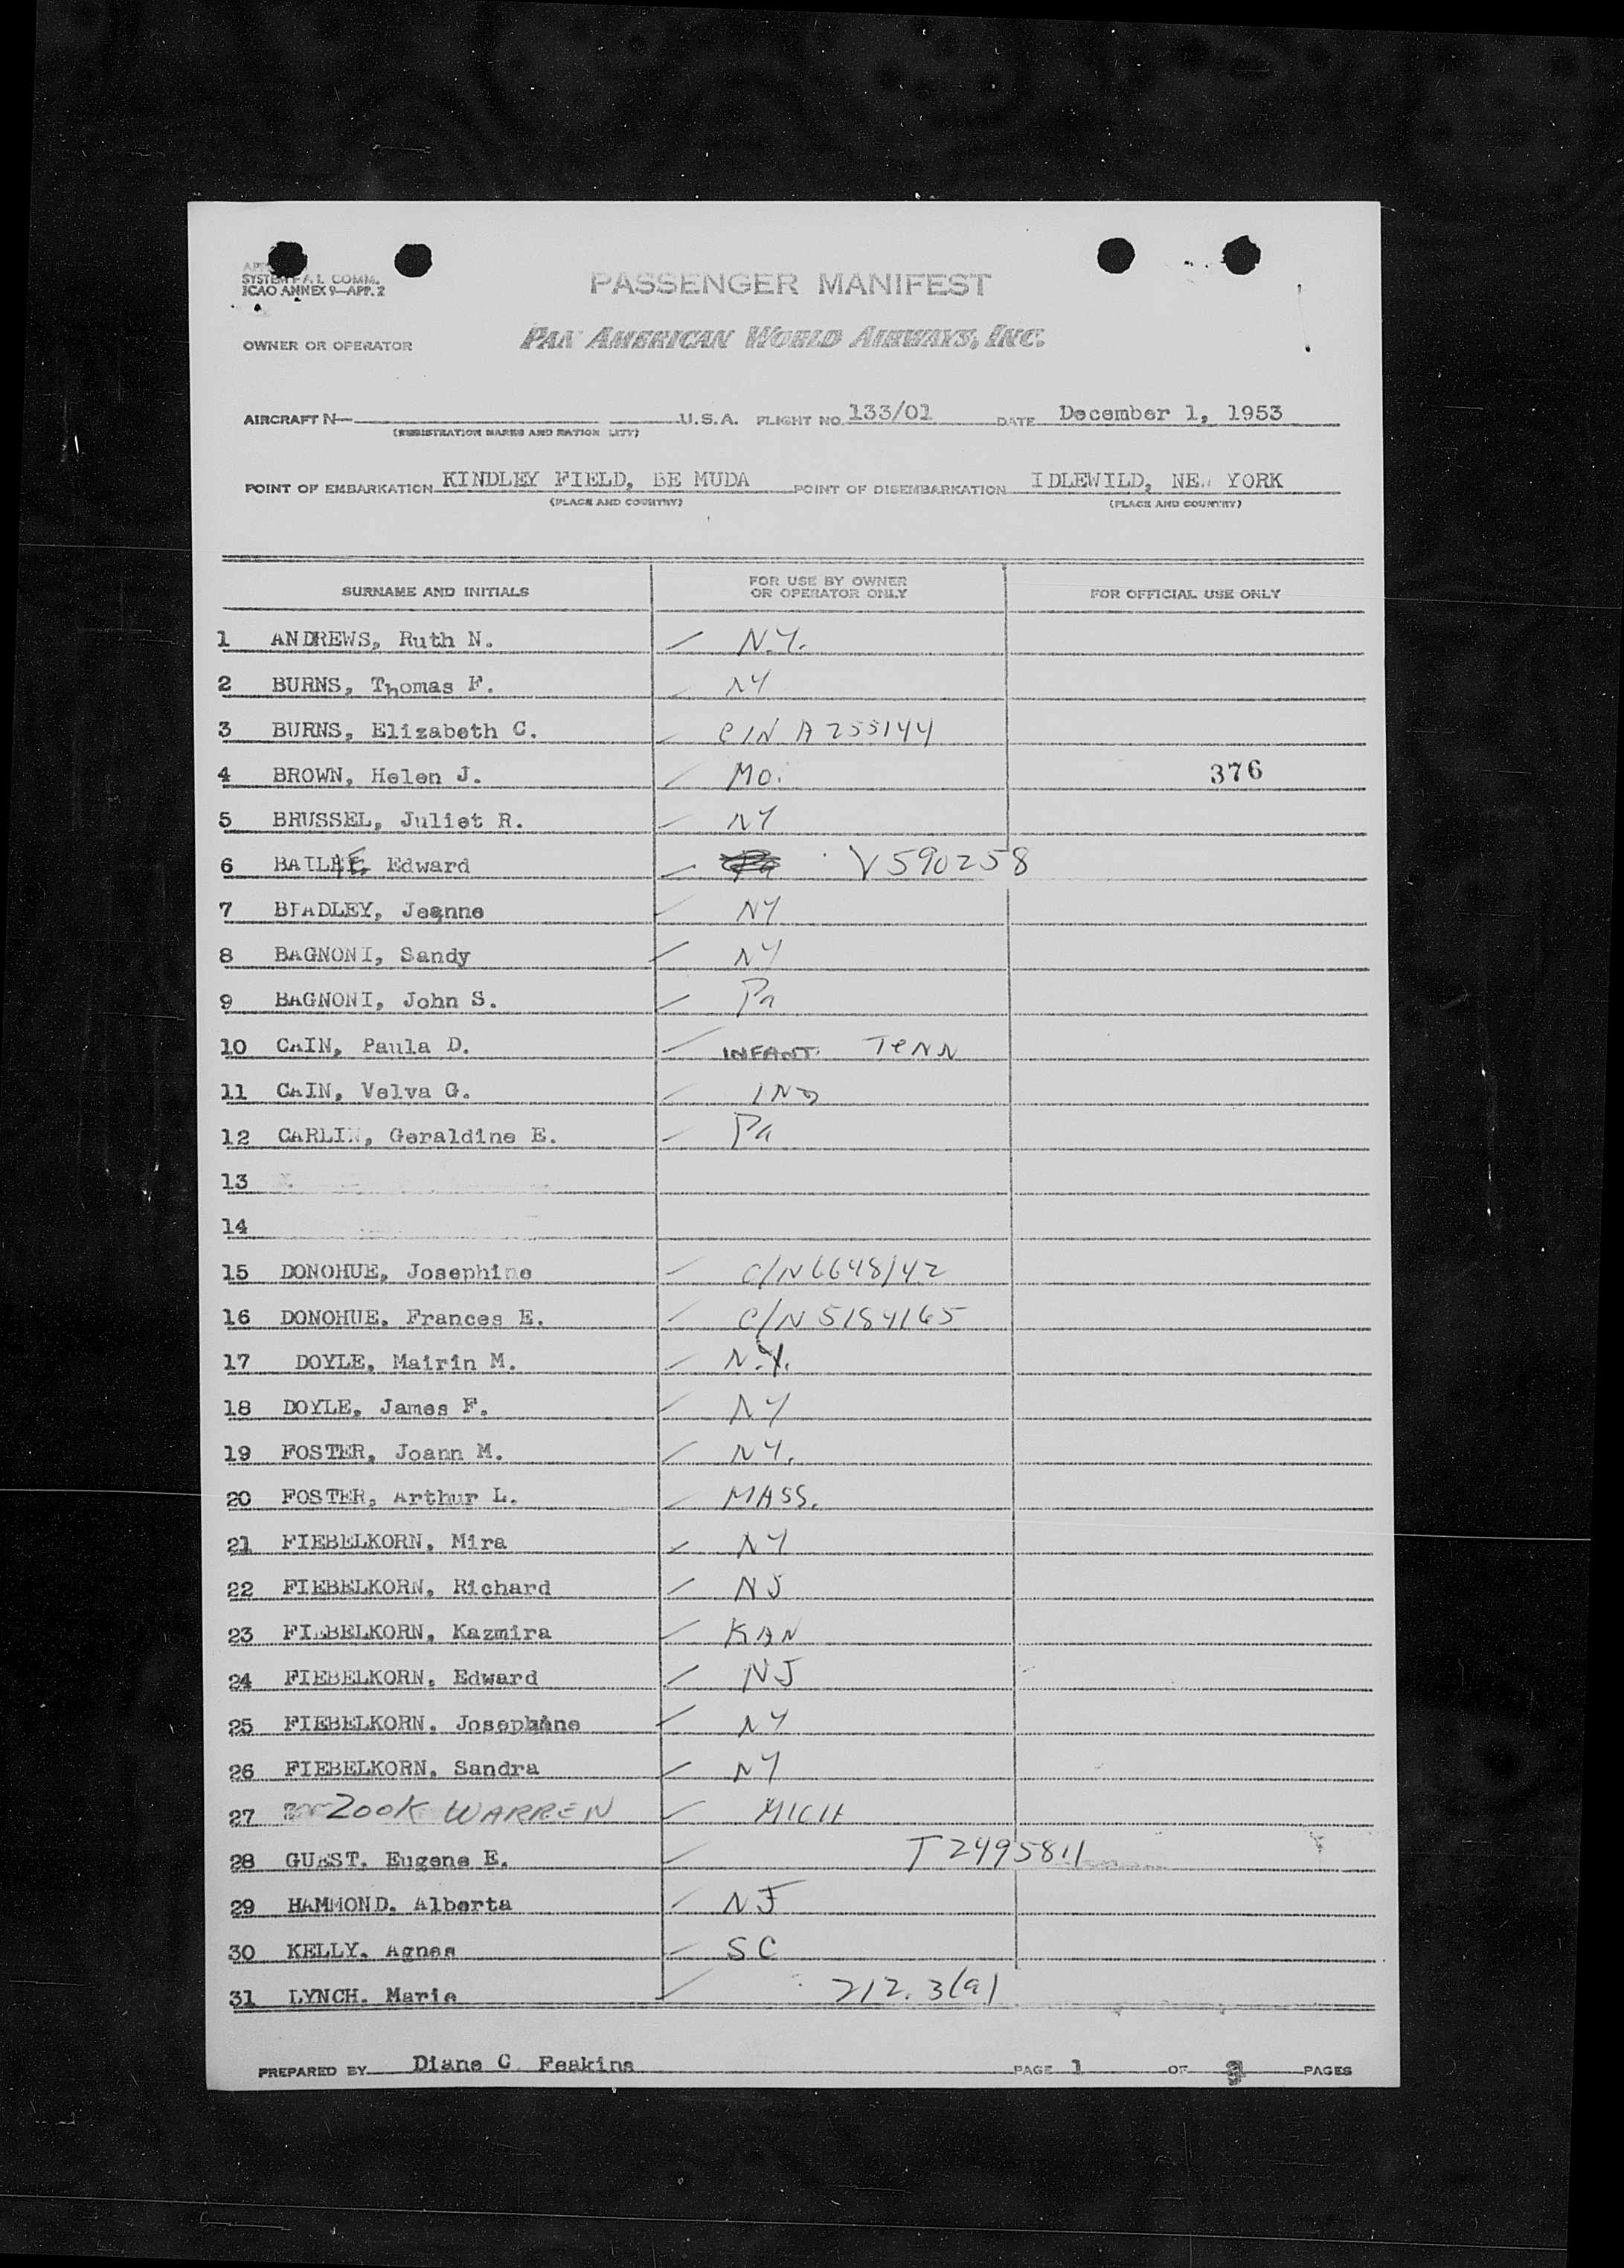 SYSTEM F A L COMM.
ICAO ANNEX 9—APP. 2
PASSENGER MANIFEST
OWNER OR OPERATOR PAN AMERICAN WORLD AIRWAYS, INC.
AIRCRAFT N— U.S.A. FLIGHT NO. 133/01 DATE December 1, 1953
(REGISTRATION MARKS AND NATION LITY)
POINT OF EMBARKATION KINDLEY FIELD, BE MUDA POINT OF DISEMBARKATION IDLEWILD, NEW YORK
(PLACE AND COUNTRY) (PLACE AND COUNTRY)
SURNAME AND INITIALS FOR USE BY OWNER OR OPERATOR ONLY FOR OFFICIAL USE ONLY
1 ANDREWS, Ruth N. N.Y.
2 BURNS, Thomas F. NY
3 BURNS, Elizabeth C. C/N A255144
4 BROWN, Helen J. Mo. 376
5 BRUSSEL, Juliet R. NY
6 Edward V590258
7 BRADLEY, Jeanne NY
8 BAGNONI, Sandy NY
9 BAGNONI, John S. Pa
10 CAIN, Paula D. INFANT. TENN
11 CAIN, Velva G. IND
12 CARLIN, Geraldine E. Pa
13
14
15 DONOHUE, Josephine C/N 6648142
16 DONOHUE, Frances E. C/N 5184165
17 DOYLE, Mairin M. N.Y.
18 DOYLE, James F. NY
19 FOSTER, Joann M. NY.
20 FOSTER, Arthur L. MASS.
21 FIEBELKORN, Mira NY
22 FIEBELKORN, Richard NJ
23 FIEBELKORN, Kazmira KAN
24 FIEBELKORN, Edward NJ
25 FIEBELKORN, Josephine NY
26 FIEBELKORN, Sandra NY
27 ZOOK WARREN MICH
28 GUEST, Eugene E. T2495811
29 HAMMOND, Alberta NJ
30 KELLY, Agnes SC
31 LYNCH, Marie 212.3(a)
PREPARED BY Diane C. Peakins PAGE 1 OF PAGES